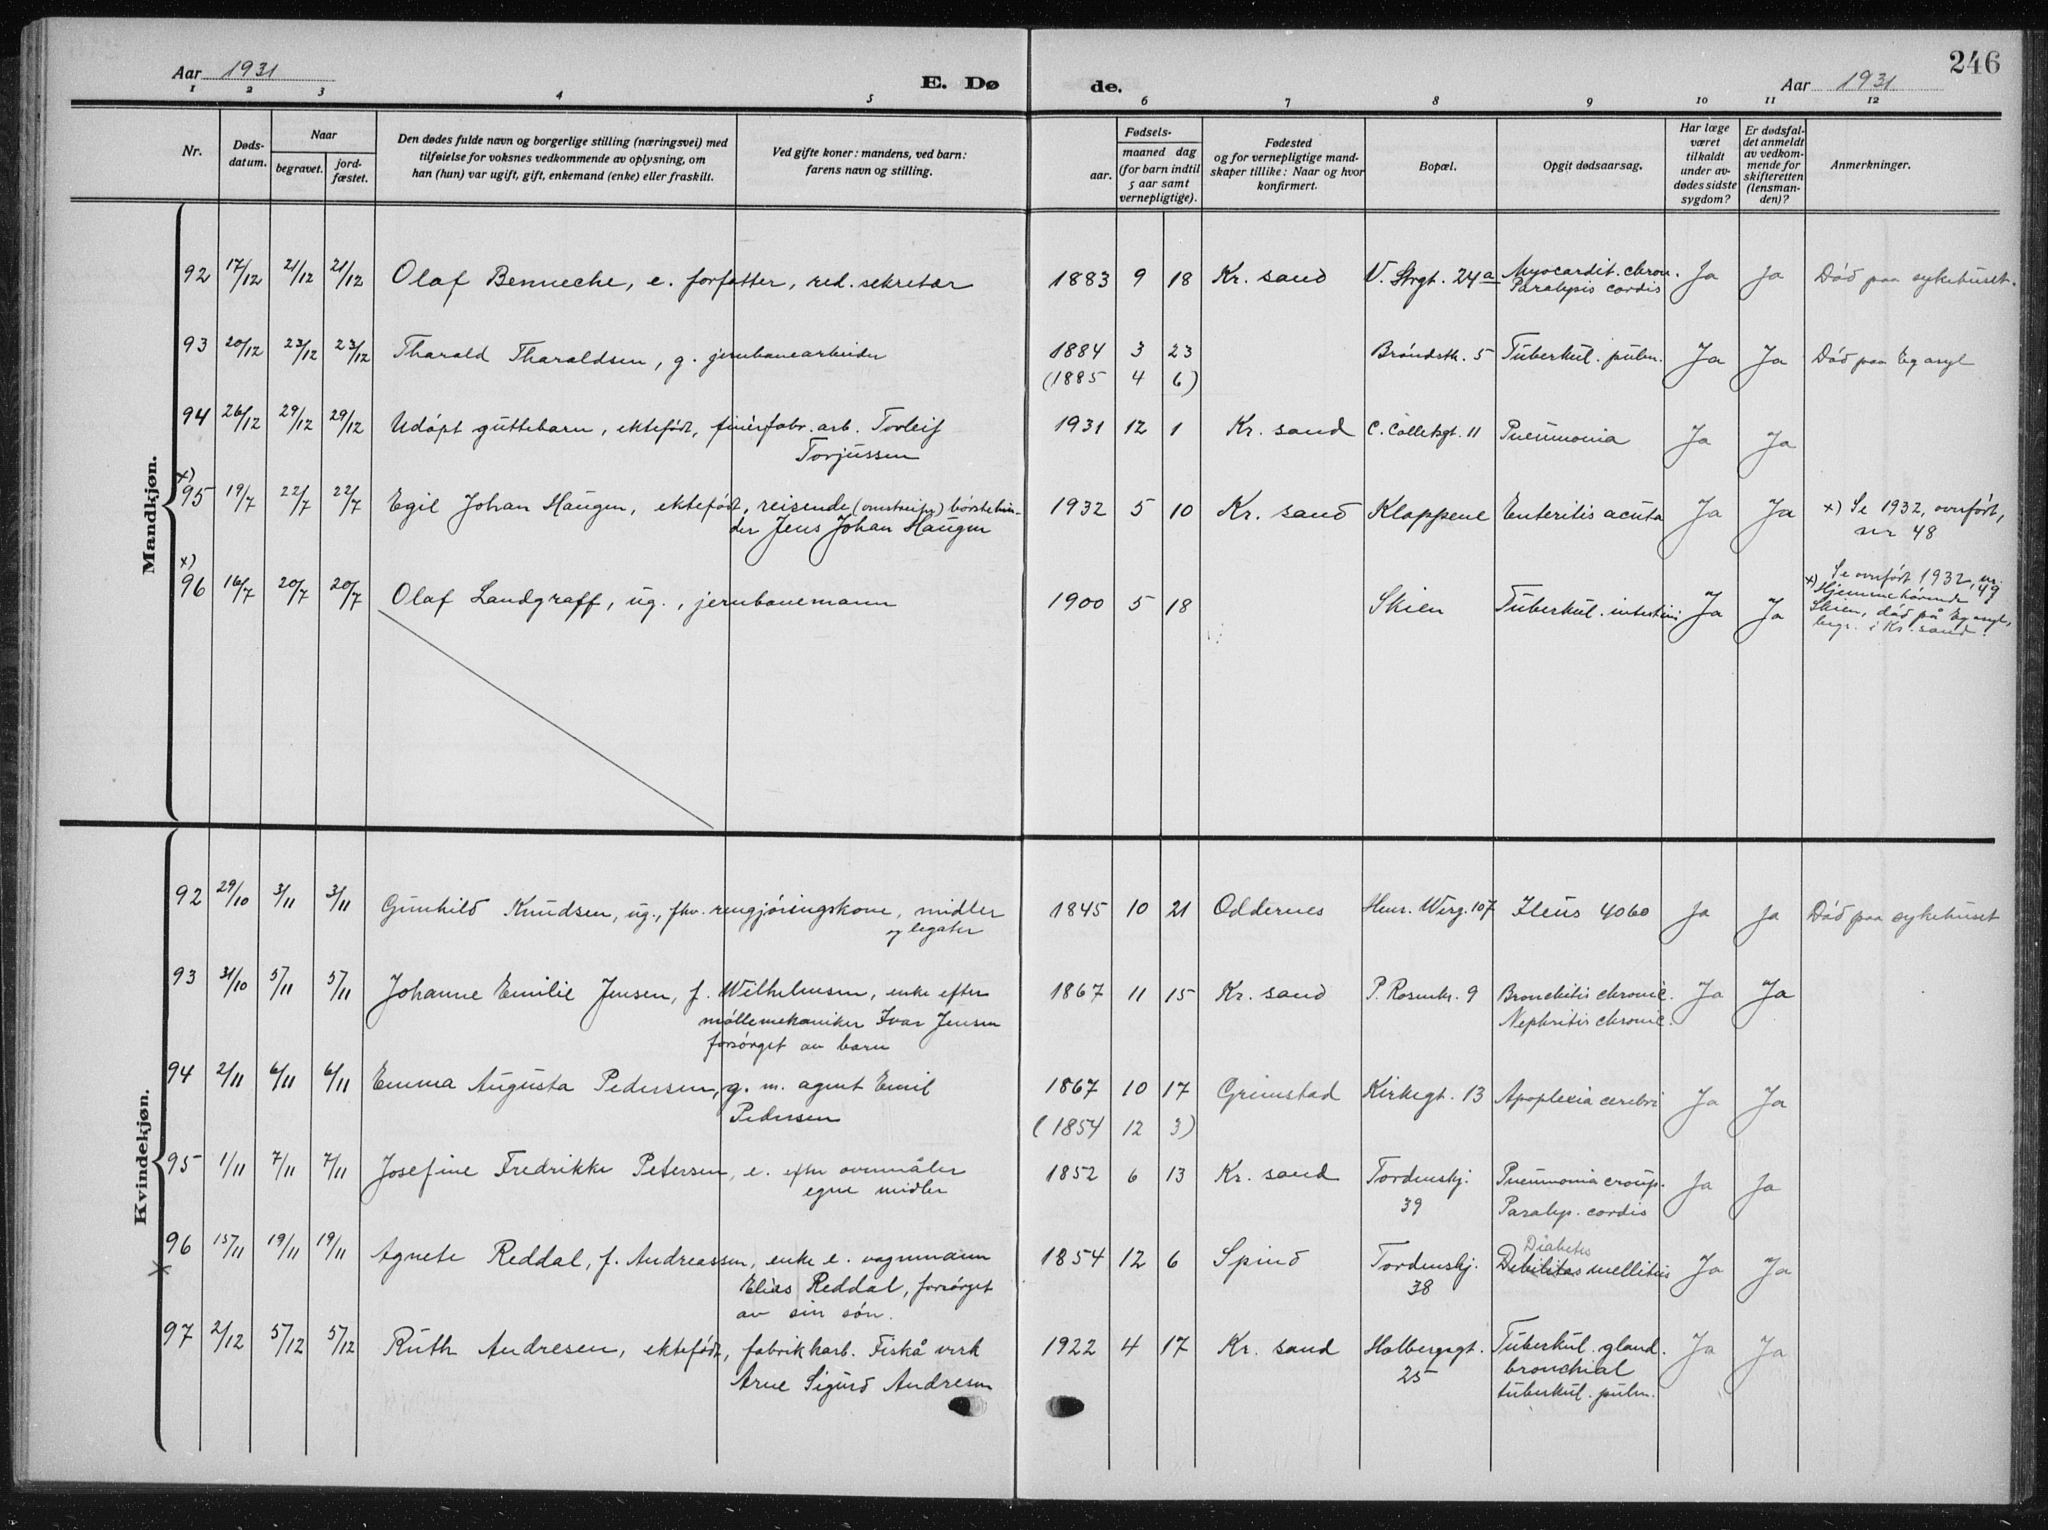 Aar 1931
E. Dø
de.
Aar 1931
246
1 2 3 4 5 6 7 8 9 10 11 12
Nr.
Døds-
datum.
Naar
begravet.
jord-
fæstet.
Den dødes fulde navn og borgerlige stilling (næringsvei) med
tilføielse for voksnes vedkommende av oplysning, om
han (hun) var ugift, gift, enkemand (enke) eller fraskilt.
Ved gifte koner: mandens, ved barn:
farens navn og stilling.
Fødsels-
aar.
maaned dag
(for barn indtil
5 aar samt
vernepligtige).
Fødested
og for vernepligtige mand-
skaper tillike: Naar og hvor
konfirmert.
Bopæl.
Opgit dødsaarsag.
Har læge
været
tilkaldt
under av-
dødes sidste
sygdom?
Er dødsfal-
det anmeldt
av vedkom-
mende for
skifteretten
(lensman-
den)?
Anmerkninger.
Mandkjøn.
92 17/12 21/12 21/12 Olaf Benneche, e. forfatter, red. sekretær 1883 9 18 Kr. sand V. Strgt. 24a Myocardit. chron. Ja Ja Død paa sykehuset.
Paralysis cordis
93 20/12 23/12 23/12 Tharald Tharaldsen, g. jernbanearbeider 1884 3 23 Brøndstk. 5 Tuberkul. pulm. Ja Ja Død paa Eg asyl
(1885 4 6)
94 26/12 29/12 29/12 Udøpt guttebarn, ektefødt, finérfabr. arb. Torleif 1931 12 1 Kr. sand C. Colletsgt. 11 Pneumonia Ja Ja
Torjussen
x)
95 19/7 22/7 22/7 Egil Johan Haugen, ektefødt, reisende (omstreifer) børstebin- 1932 5 10 Kr. sand Kloppene Enteritis acuta Ja Ja x) Se 1932, overført,
der Jens Johan Haugen nr 48
x)
96 16/7 20/7 20/7 Olaf Landgraff, ug., jernbanemann 1900 5 18 Skien Tuberkul. intestini Ja Ja Se overført 1932, nr. 49
x) Hjemmehørende
Skien, død på Eg asyl,
begr. i Kr. sand.
Kvindekjøn.
92 29/10 3/11 3/11 Gunhild Knudsen, ug., fhv. rengjøringskone, midler 1845 10 21 Oddernes Henr. Werg. 107 Ileus 4060 Ja Ja Død paa sykehuset
og legater
93 31/10 5/11 5/11 Johanne Emilie Jensen, f. Wilhelmsen, enke efter 1867 11 15 Kr. sand P. Rosenkr. 9 Bronchitis chronic. Ja Ja
møllemekaniker Ivar Jensen Nephritis chronic.
forsørget av barn
94 2/11 6/11 6/11 Emma Augusta Pedersen, g. m. agent Emil 1867 10 17 Grimstad Kirkegt. 13 Apoplexia cerebri Ja Ja
Pedersen (1854 12 3)
95 1/11 7/11 7/11 Josefine Fredrikke Petersen, e. efter ovenmåler 1852 6 13 Kr. sand Tordenskj. Pneumonia croup. Ja Ja
egne midler 39 Paralys. cordis
96 15/11 19/11 19/11 Agnete Reddal, f. Andreassen, enke e. vognmann 1854 12 6 Spind Tordenskj. Diabetes
x Debilitas mellitus Ja Ja
Elias Reddal, forsørget 38
av sin søn.
97 2/12 5/12 5/12 Ruth Andresen, ektefødt, fabrikkarb. Fiskå verk 1922 4 17 Kr. sand Holbergsgt. Tuberkul. gland. Ja Ja
Arne Sigurd Andresen 25 bronchial
tuberkul. pulm.